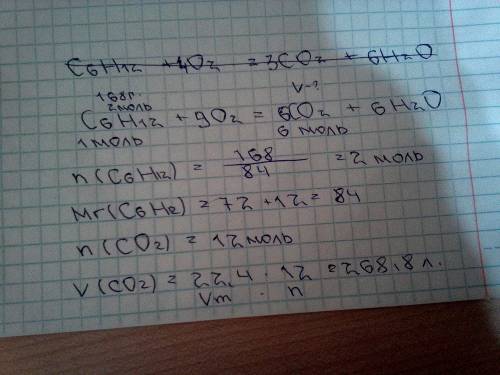 C6H12 + 4O2 = 3CO2 + 6H2O
168г. V-?
2моль
C6H12 + 9O2 = 6CO2 + 6H2O
1моль 6 моль
n(C6H12) = 168/84 = 2 моль
Mr(C6H12) = 72 + 12 = 84
n(CO2) = 12моль
V(CO2) = 22,4 · 12 = 268,8 л.
Vm · n